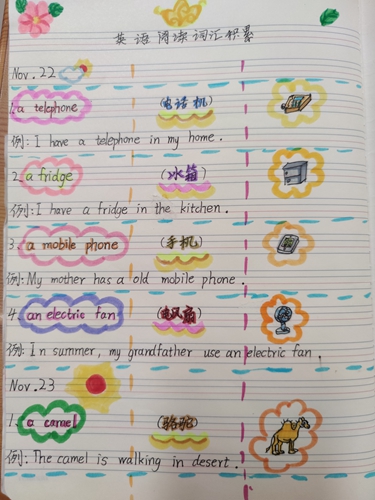 英语阅读词汇积累
Nov.22
1. a telephone (电话机)
例: I have a telephone in my home.
2. a fridge (冰箱)
例: I have a fridge in the kitchen.
3. a mobile phone (手机)
例: My mother has a old mobile phone.
4. an electric fan (电风扇)
例: In summer, my grandfather use an electric fan.
Nov.23
1. a camel (骆驼)
例: The camel is walking in desert.